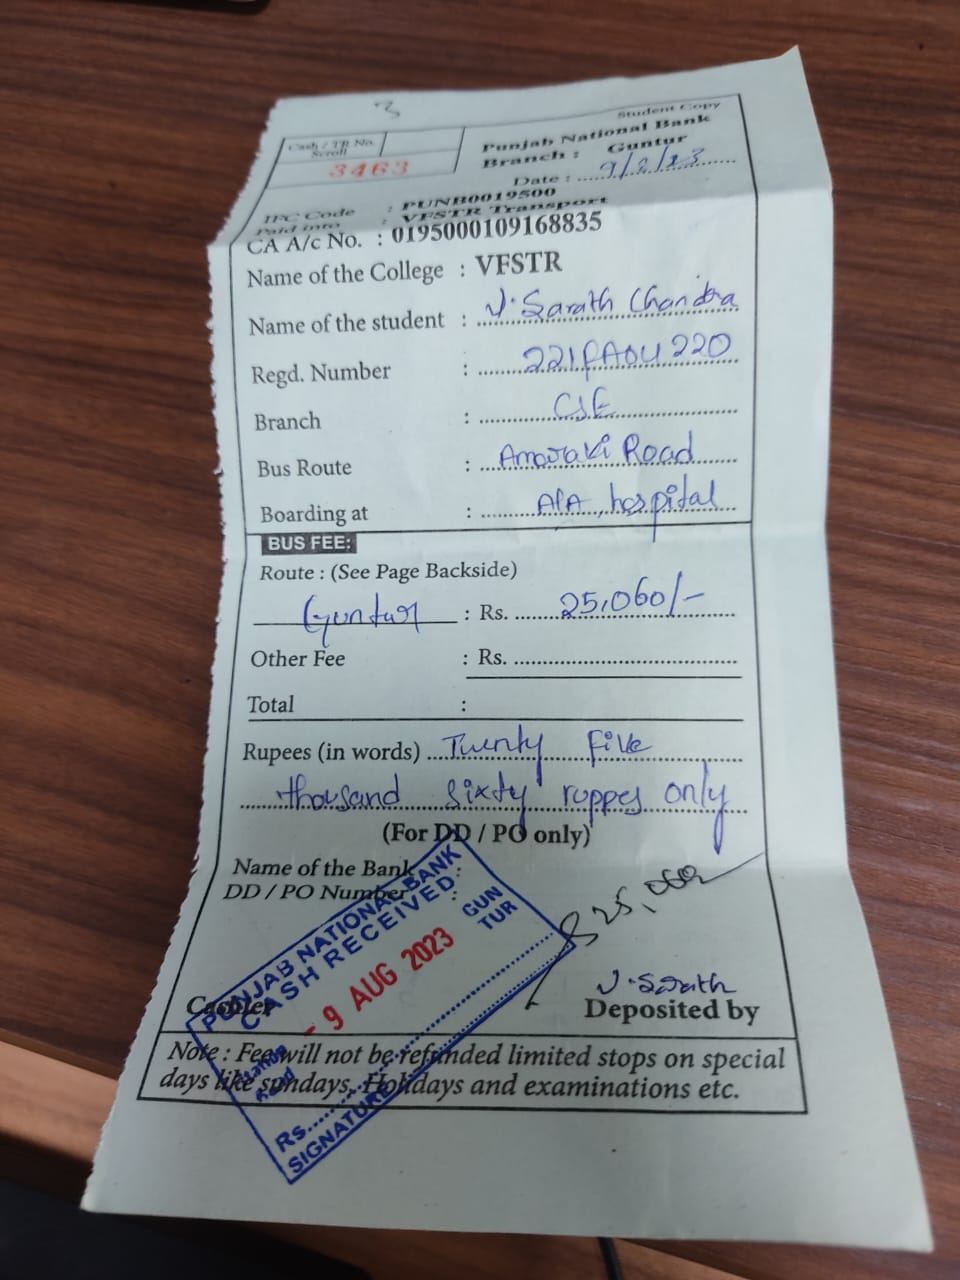 3
Student Copy
Cash / TR No.
Scroll
3463
Punjab National Bank
Branch : Guntur
Date : 9/8/23
IFC Code : PUNB0019500
Paid into : VFSTR Transport
CA A/c No. : 0195000109168835
Name of the College : VFSTR
Name of the student : V. Sarath Chandra
Regd. Number : 221FA04220
Branch : CSE
Bus Route : Amaravi Road
Boarding at : hospital
BUS FEE:
Route : (See Page Backside)
Guntur : Rs. 25,060/-
Other Fee : Rs.
Total :
Rupees (in words) Twenty Five
thousand sixty ruppes only
(For DD / PO only)
Name of the Bank :
DD / PO Number :
PUNJAB NATIONAL BANK
CASH RECEIVED
GUN
TUR
- 9 AUG 2023
Rs.
SIGNATURE
V. Sarath
Cashier
Deposited by
Note : Fee will not be refunded limited stops on special
days like sundays, Holidays and examinations etc.